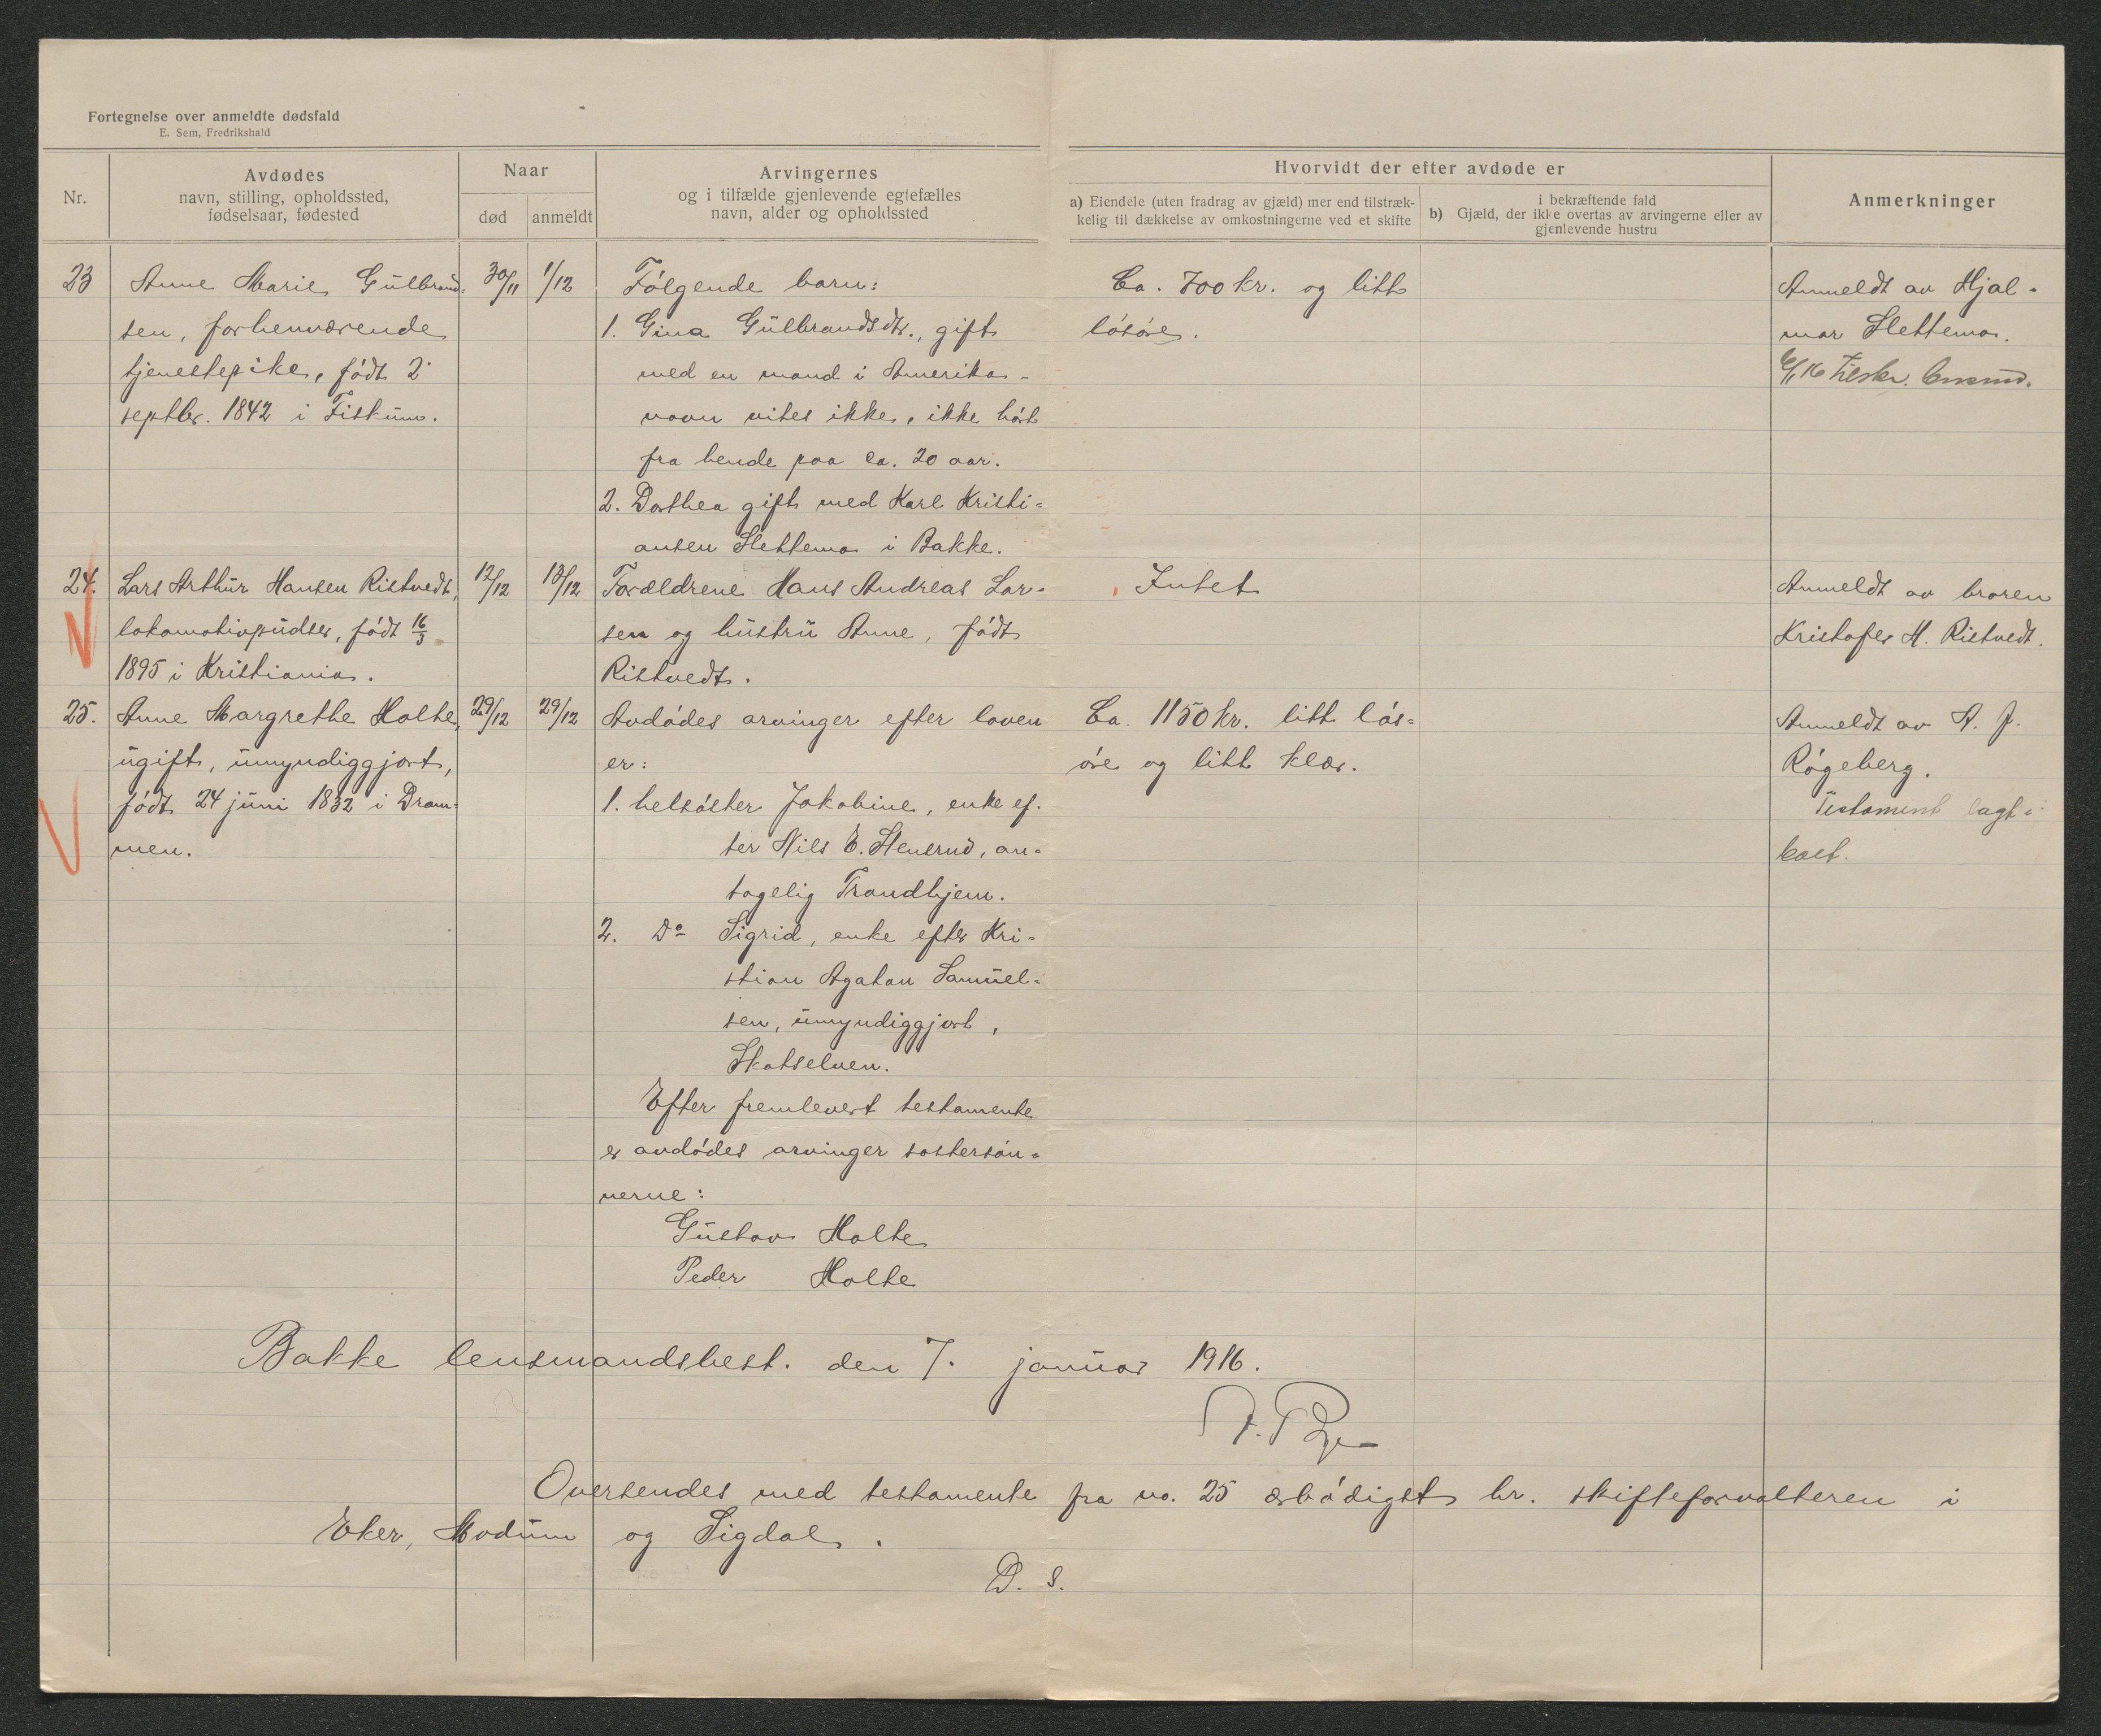 Fortegnelse over anmeldte dødsfald
E. Sem, Fredrikshald
Nr.
Avdødes
navn, stilling, opholdssted,
fødselsaar, fødested
Naar
død
anmeldt
Arvingernes
og i tilfælde gjenlevende egtefælles
navn, alder og opholdssted
Hvorvidt der efter avdøde er
a) Eiendele (uten fradrag av gjæld) mer end tilstræk-
kelig til dækkelse av omkostningerne ved et skifte
i bekræftende fald
b) Gjæld, der ikke overtas av arvingerne eller av
gjenlevende hustru
Anmerkninger
23
Anne Marie Gulbrand-
sen, forhenværende
tjenestepike, født 2
septbr. 1842 i Fiskum.
30/11
1/12
Følgende barn:
1. Gina Gulbrandsdtr., gift
med en mand i Amerika -
navn vites ikke, ikke hørt
fra hende paa ca. 20 aar.
2. Dorthea gift med Karl Kristi-
ansen Slettemo i Bakke.
Ca. 700 kr. og litt
løsøre.
Anmeldt av Hjal-
mar Slettemo.
6/1 16 Tilskr.
24.
Lars Arthur Hansen Ristvedt,
lokomotivpudser, født 16/3
1895 i Kristiania.
12/12
13/12
Forældrene Hans Andreas Lar-
sen og hustru Anne, født
Ristvedt.
Intet
Anmeldt av broren
Kristofer H. Ristvedt.
25.
Anne Margrethe Holte,
ugift, umyndiggjort,
født 24 juni 1832 i Dram-
men.
29/12
29/12
Avdødes arvinger efter loven
er:
1. helsøster Jakobine, enke ef-
ter Nils E. Stenerud, an-
tagelig Trondhjem.
2. Do Sigrid, enke efter Kri-
stian Agaton Samuel-
sen, umyndiggjort,
Skotselven.
Efter fremlevert testamente
er avdødes arvinger søstersøn-
nerne:
Gustav Holte
Peder Holte
Ca. 1150 kr. litt løs-
øre og litt klær.
Anmeldt av A. J.
Røgeberg.
Testament lagt i
Bakke lensmandsbest. den 7. januar 1916.
Oversendes med testamente fra no. 25 ærbødigst hr. skifteforvalteren i
Eker, Modum og Sigdal.
D. s.